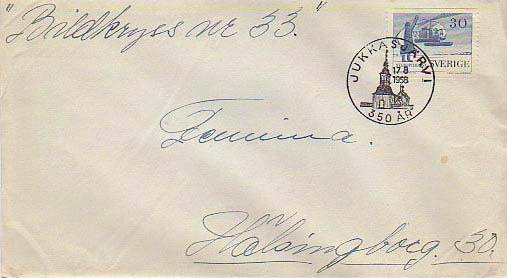 "Bildkryss nr 33."
30
SVERIGE
JUKKASJÄRVI
17.8
1958
350 ÅR
Femina.
Hälsingborg. 30.